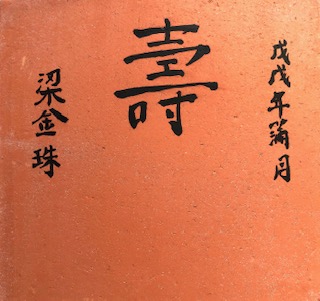 戊戌年蒲月
壽
梁金珠